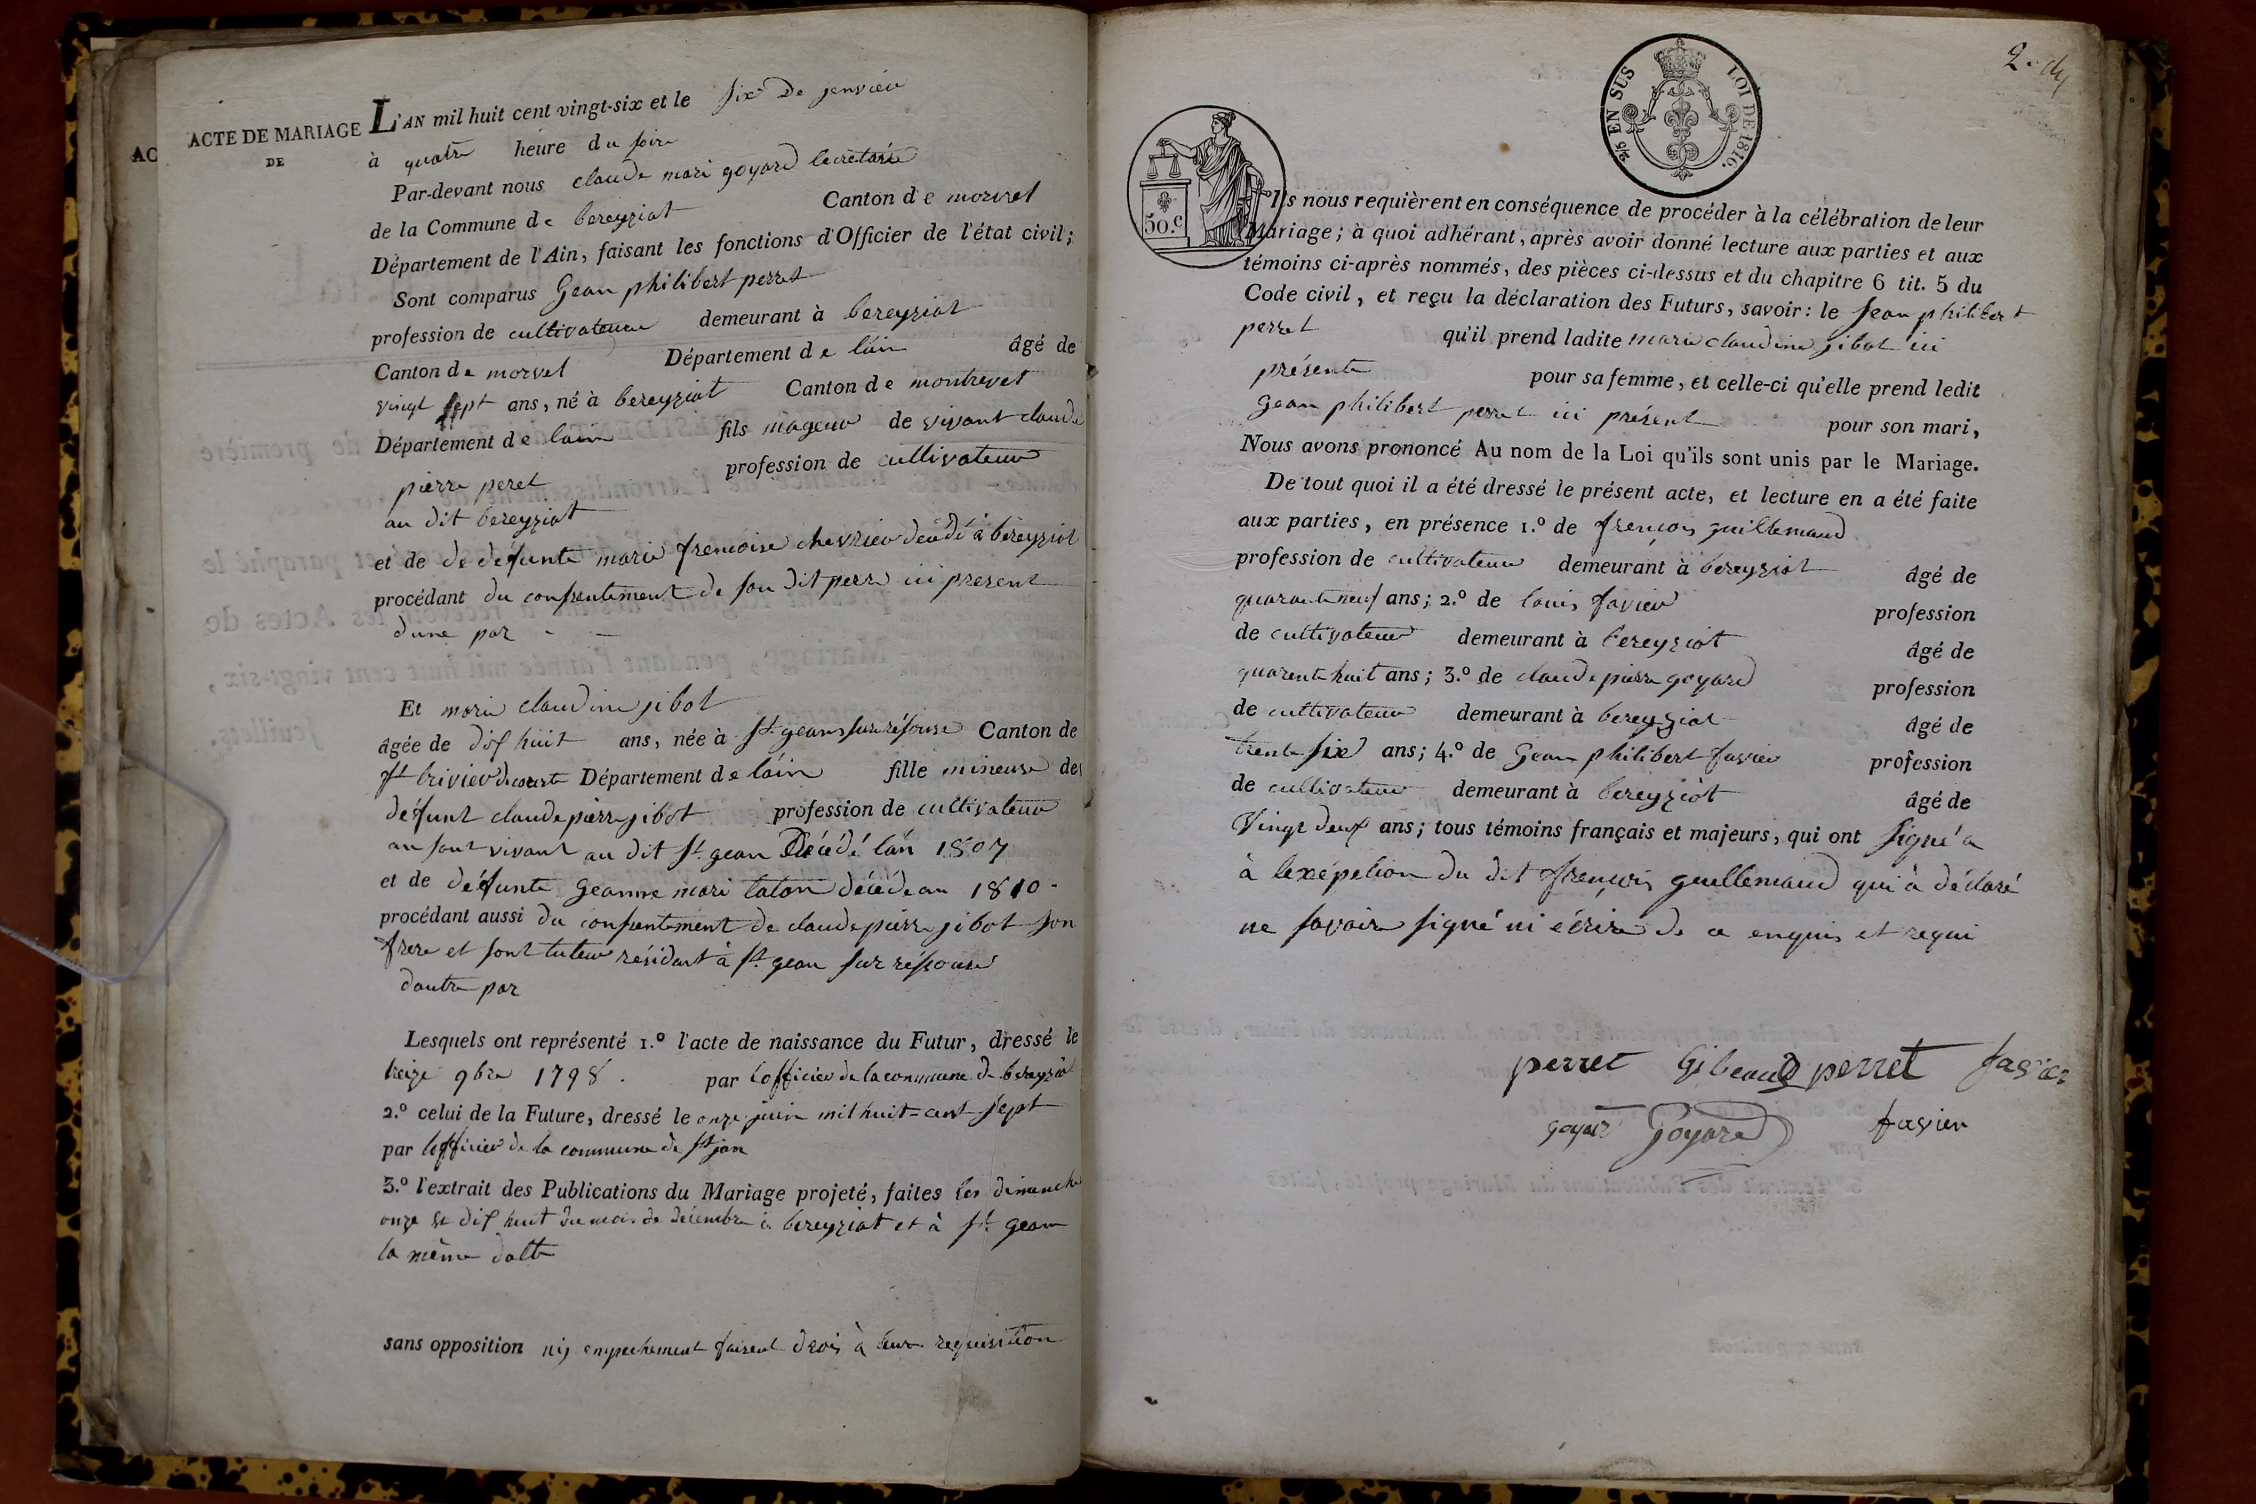 ACTE DE MARIAGE
DE
AC
L'AN mil huit cent vingt-six et le six de jenvier
à quatre heure du soir
Par-devant nous claude mari goyard secretaire
de la Commune de bereyziat Canton de morvel
Département de l'Ain, faisant les fonctions d'Officier de l'état civil;
Sont comparus Gean philibert perret
profession de cultivateur demeurant à bereyziat
Canton de morvel Département de l'áin âgé de
vingt sept ans, né à bereyziat Canton de montrevet
Département de lain fils mageur de vivant claude
pierre peret profession de cultivateur
au dit bereyziat
et de de défunte marie frencoise chevrier décédé à bereyziat
procédant du consentement de son dit perre ici present
dune par
Et mari claudine jibot
âgée de dis huit ans, née à st. gean sur résouse Canton de
st trivier de courte Département de láin fille mineuse de
défunt claude pierre jibot profession de cultivateur
au sont vivant au dit st. gean Décédé lán 1807
et de défunte geanne mari taton décédé an 1810
procédant aussi du consentement de claude pierre jibot son
frere et sont tuteur résidant à st. gean sur résouse
dautre par
Lesquels ont représenté 1.º l'acte de naissance du Futur, dressé le
treize 9bre 1798. par lofficier de la commune de bereyziat
2.º celui de la Future, dressé le onze juin mil huit=cent sept
par lofficier de la commune de st jan
3.º l'extrait des Publications du Mariage projeté, faites les dimanche
onze et dis huit du mois de décembre à bereyziat et à st. gean
la même datte
sans opposition niy enpechement faisent drois à leur requisition
2.
2/5 EN SUS LOI DE 1816.
50.c
Ils nous requièrent en conséquence de procéder à la célébration de leur
Mariage; à quoi adhérant, après avoir donné lecture aux parties et aux
témoins ci-après nommés, des pièces ci-dessus et du chapitre 6 tit. 5 du
Code civil, et reçu la déclaration des Futurs, savoir: le Jean philibert
perret qu'il prend ladite marie claudine jibot ici
présente pour sa femme, et celle-ci qu'elle prend ledit
Gean philibert perret ici présent pour son mari,
Nous avons prononcé Au nom de la Loi qu'ils sont unis par le Mariage.
De tout quoi il a été dressé le présent acte, et lecture en a été faite
aux parties, en présence 1.º de françois guillemaud
profession de cultivateur demeurant à bereyziat âgé de
quarante neuf ans; 2.º de louis favier profession
de cultivateur demeurant à bereyziat âgé de
quarente huit ans; 3.º de claude pierre goyard profession
de cultivateur demeurant à bereyziat âgé de
trente six ans; 4.º de Gean philibert favier profession
de cultivateur demeurant à bereyziat âgé de
Vingt deux ans; tous témoins français et majeurs, qui ont signé a
à lexépetion du dit françois guellemaud qui à déclaré
ne savoir signé ni écrire de ce enquis et requi
perret Gibeaud perret favier
goyard Goyard favier